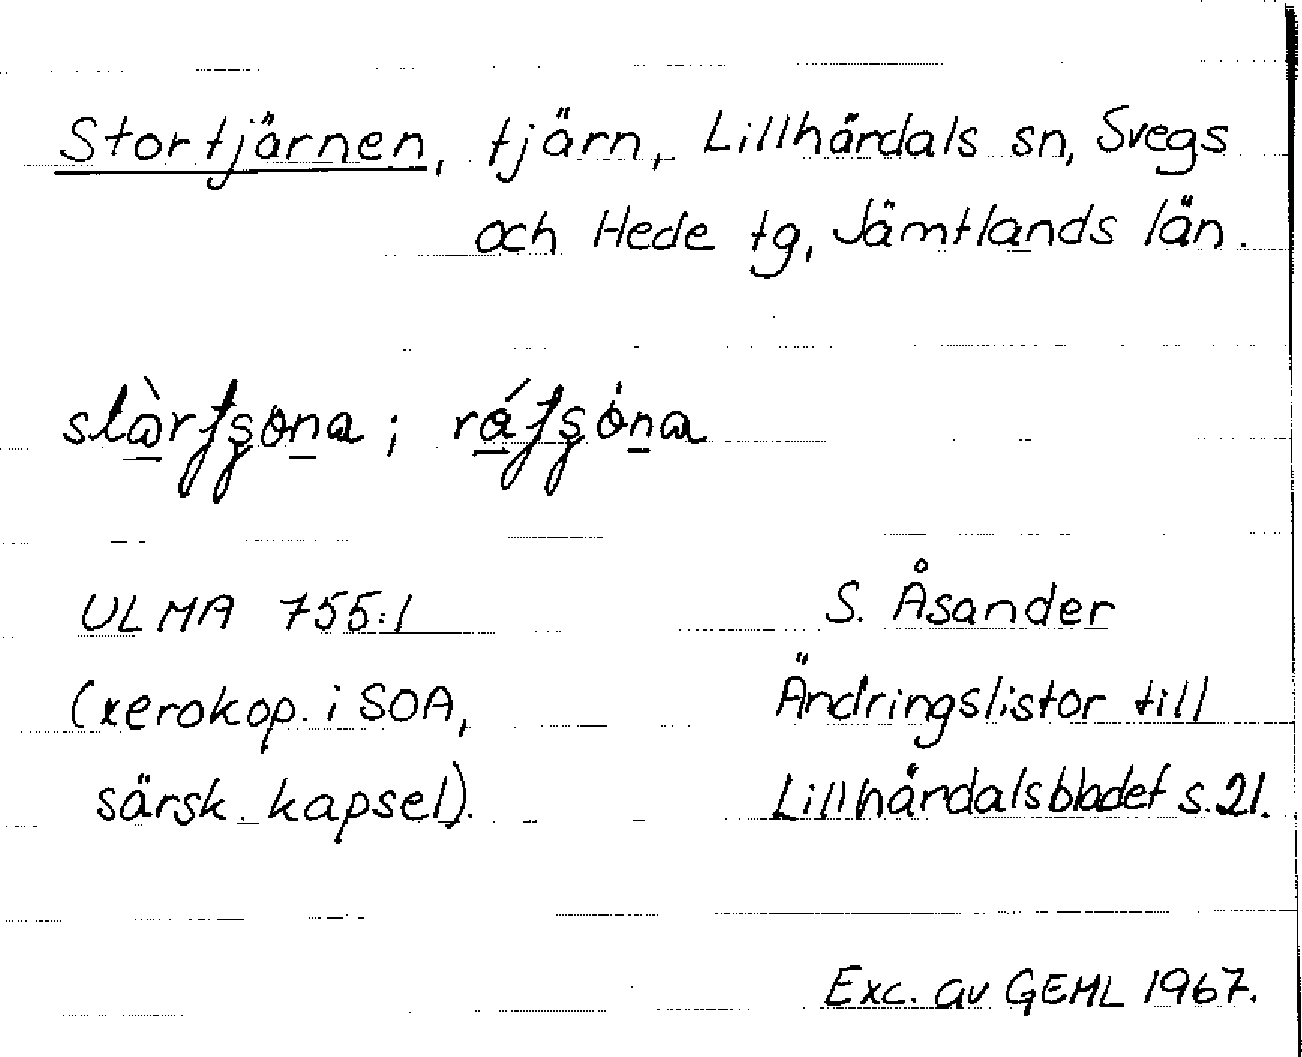 Stortjärnen, tjärn, Lillhärdals sn, Svegs
och Hede tg, Jämtlands län.
ULMA 755:1
S. Åsander
(xerokop. i SOA,
Ändringslistor till
särsk. kapsel).
Lillhärdalsbladet s. 21.
Exc. av GEHL 1967.